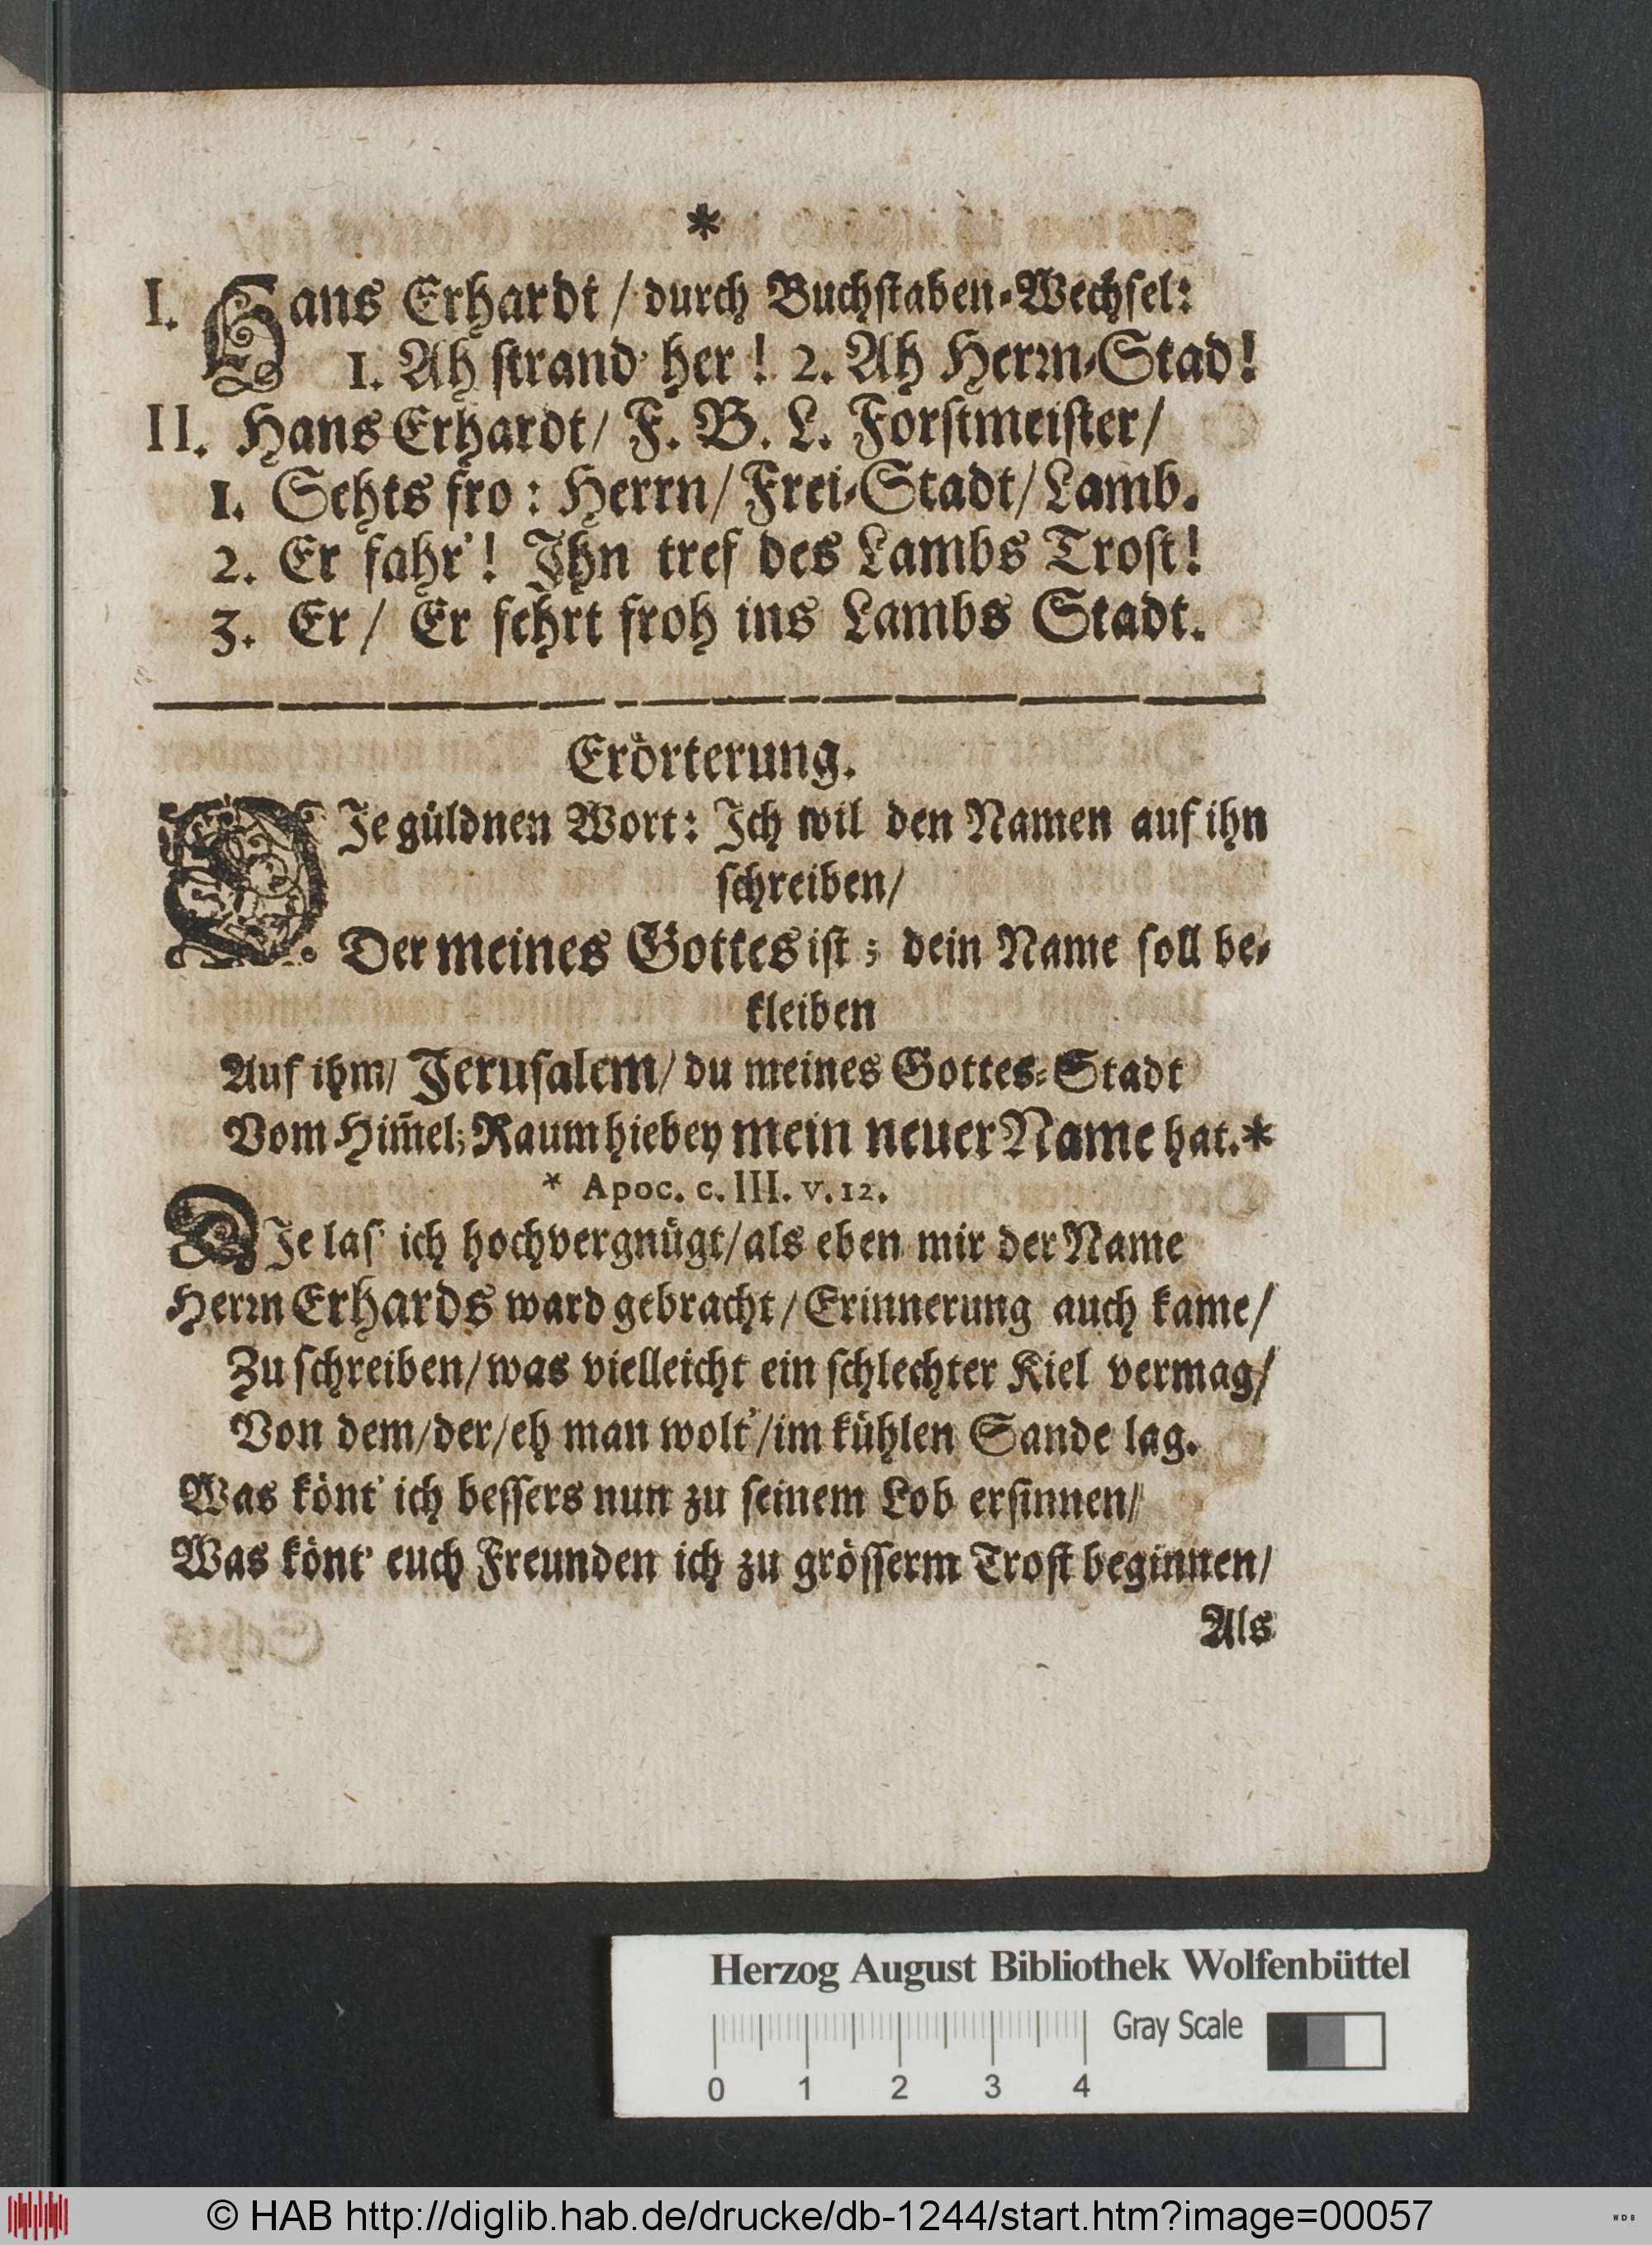 *
I. Hans Erhardt / durch Buchſtaben-Wechſel:
1. Ah ſtrand' her! 2. Ah Herꝛn-Stad!
II. Hans Erhardt/ F. B. L. Forſtmeiſter/
1. Sehts fro: Herrn/ Frei-Stadt/ Lamb.
2. Er fahr'! Ihn tref des Lambs Troſt!
3. Er/ Er fehrt froh ins Lambs Stadt.
Erörterung.
DIe güldnen Wort: Ich wil den Namen auf ihn
ſchreiben/
Der meines Gottes iſt; dein Name ſoll be-
kleiben
Auf ihm/ Jeruſalem/ du meines Gottes-Stadt
Vom Him̃el; Raum hiebey mein neuer Name hat.*
* Apoc. c. III. v. 12.
DIe laſ' ich hochvergnügt/ als eben mir der Name
Herꝛn Erhards ward gebracht / Erinnerung auch kame/
Zu ſchreiben/ was vielleicht ein ſchlechter Kiel vermag/
Von dem/ der/ eh man wolt'/ im kühlen Sande lag.
Was könt' ich beſſers nun zu ſeinem Lob erſinnen/
Was könt' euch Freunden ich zu gröſſerm Troſt beginnen/
Als
Herzog August Bibliothek Wolfenbüttel
Gray Scale
0 1 2 3 4
© HAB http://diglib.hab.de/drucke/db-1244/start.htm?image=00057
WDB